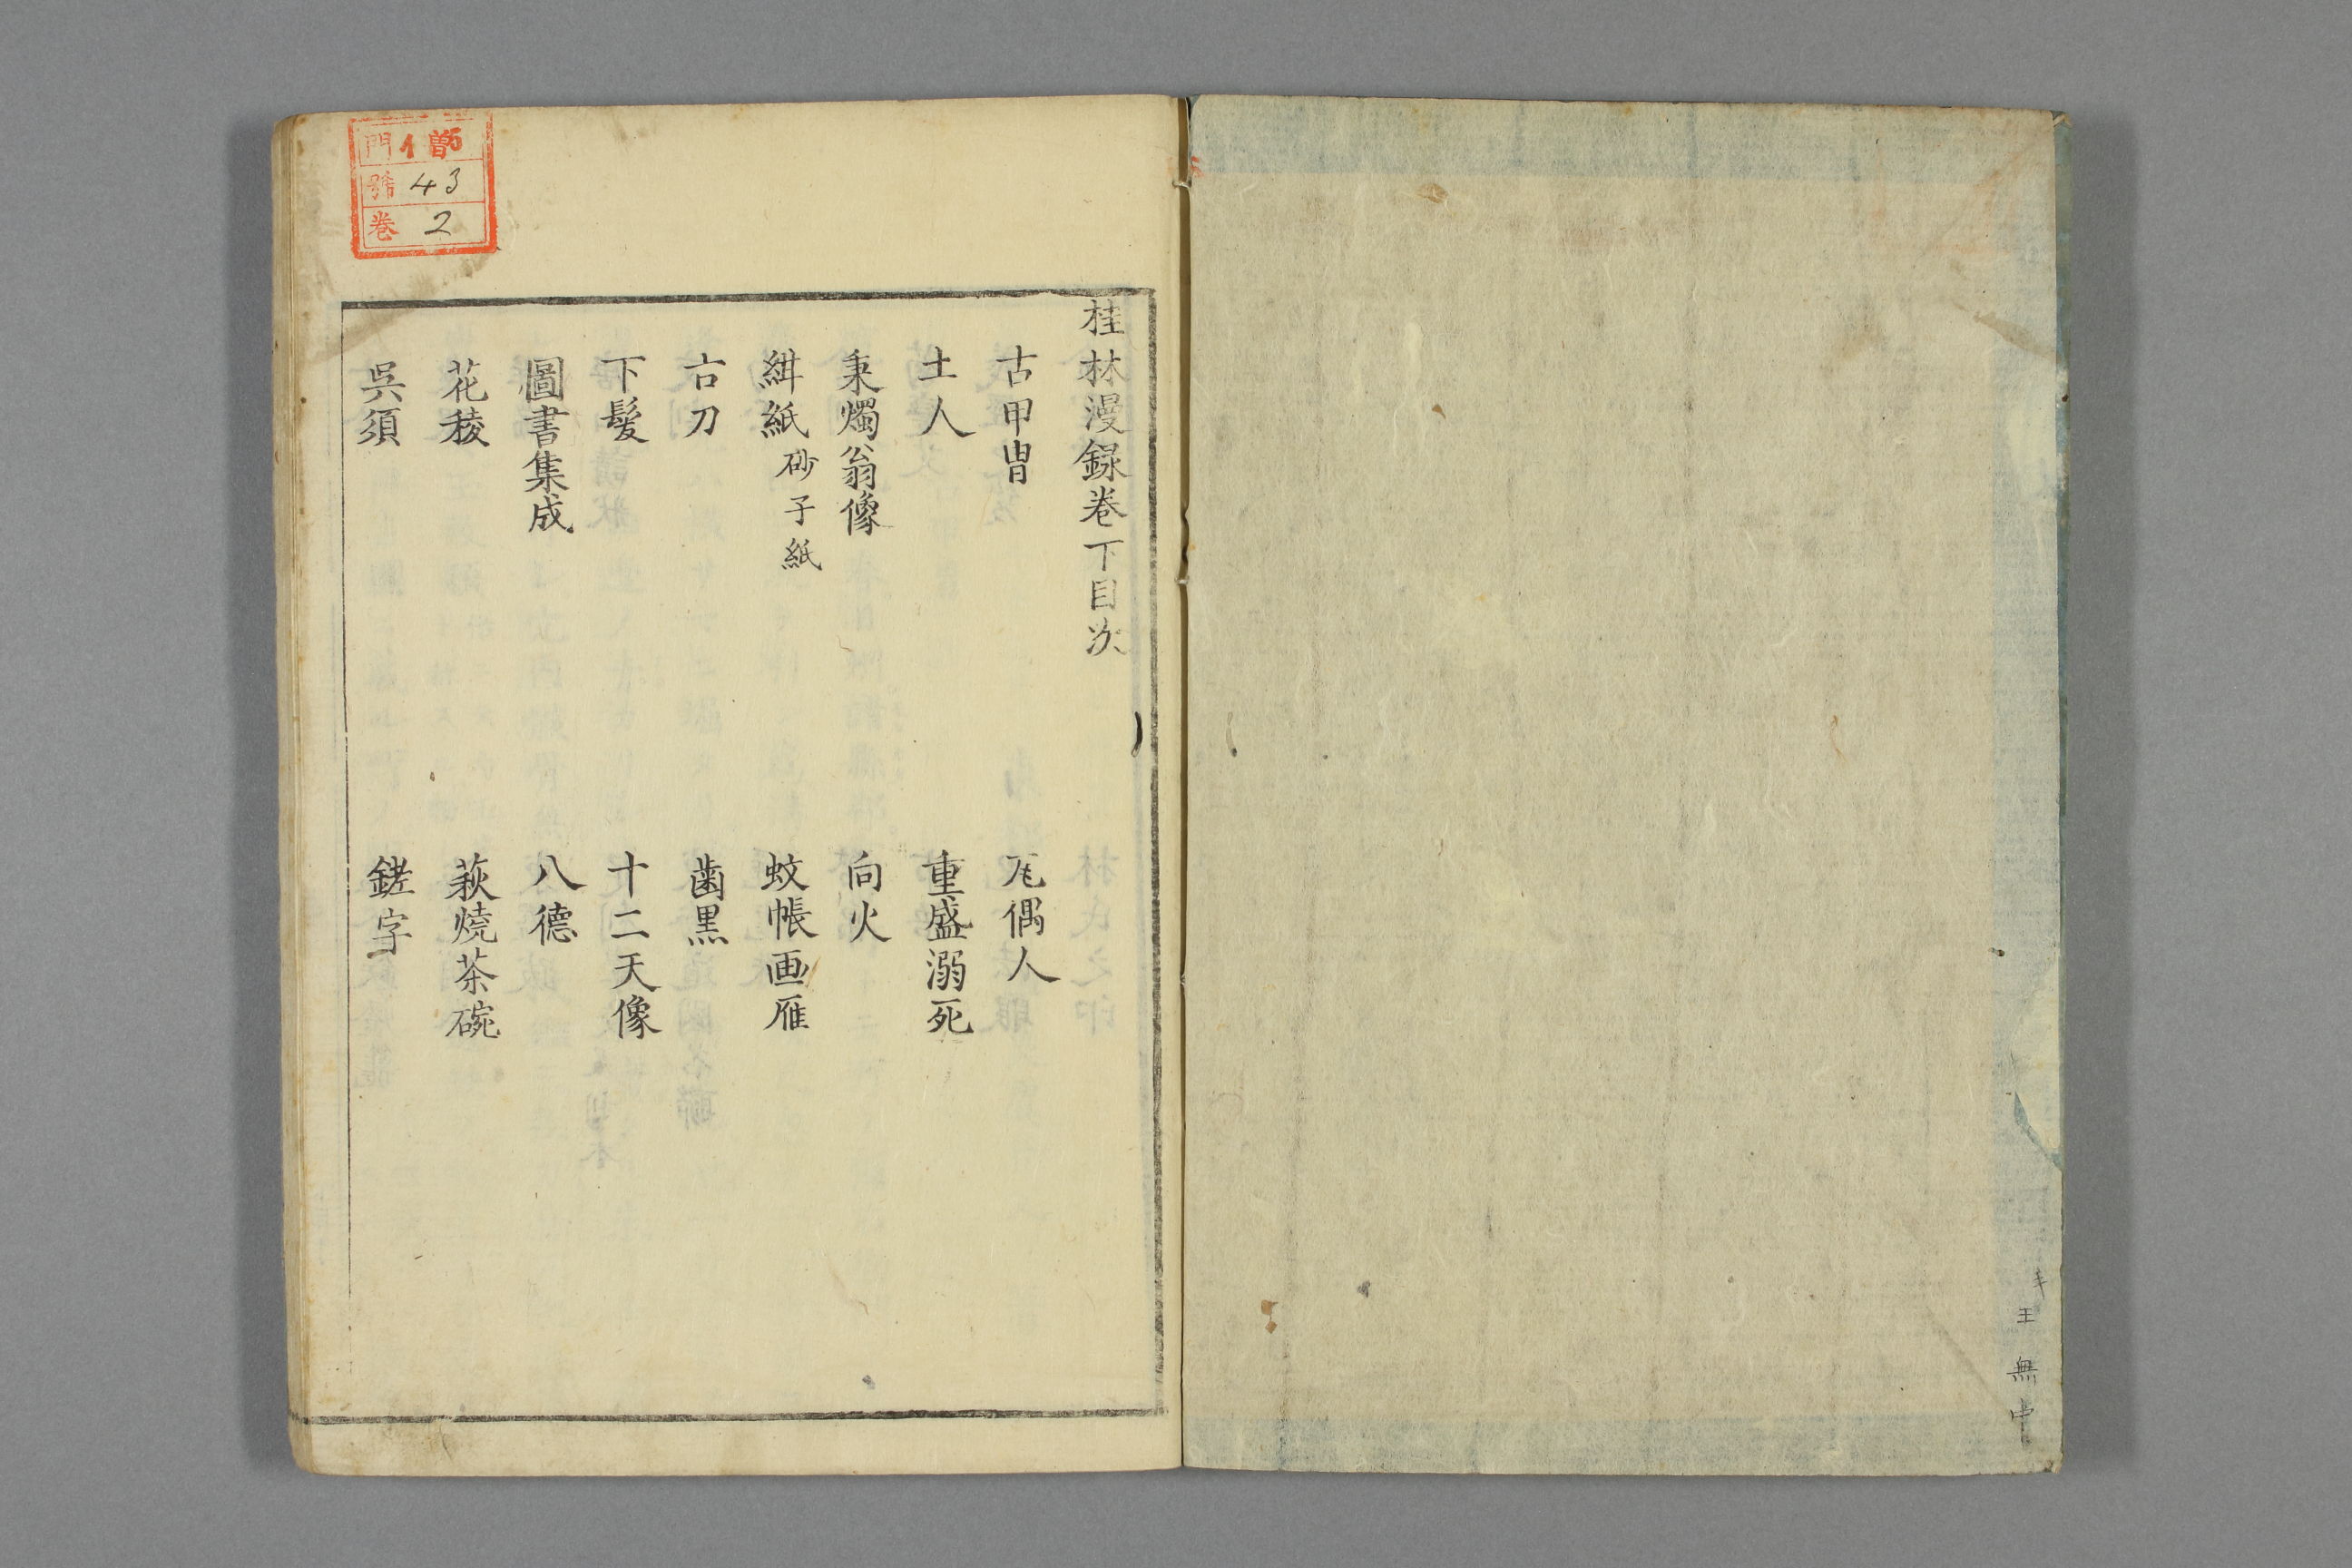 桂林漫録巻下目次
古甲冑
瓦偶人
土人
重盛溺死
秉燭翁像
向火
緝紙 砂子紙
蚊帳画雁
古刀
歯黒
下髪
十二天像
圖書集成
八德
花稜
萩焼茶碗
呉須
鎈字
門 イ曽5
號 43
巻 2
王
無
中